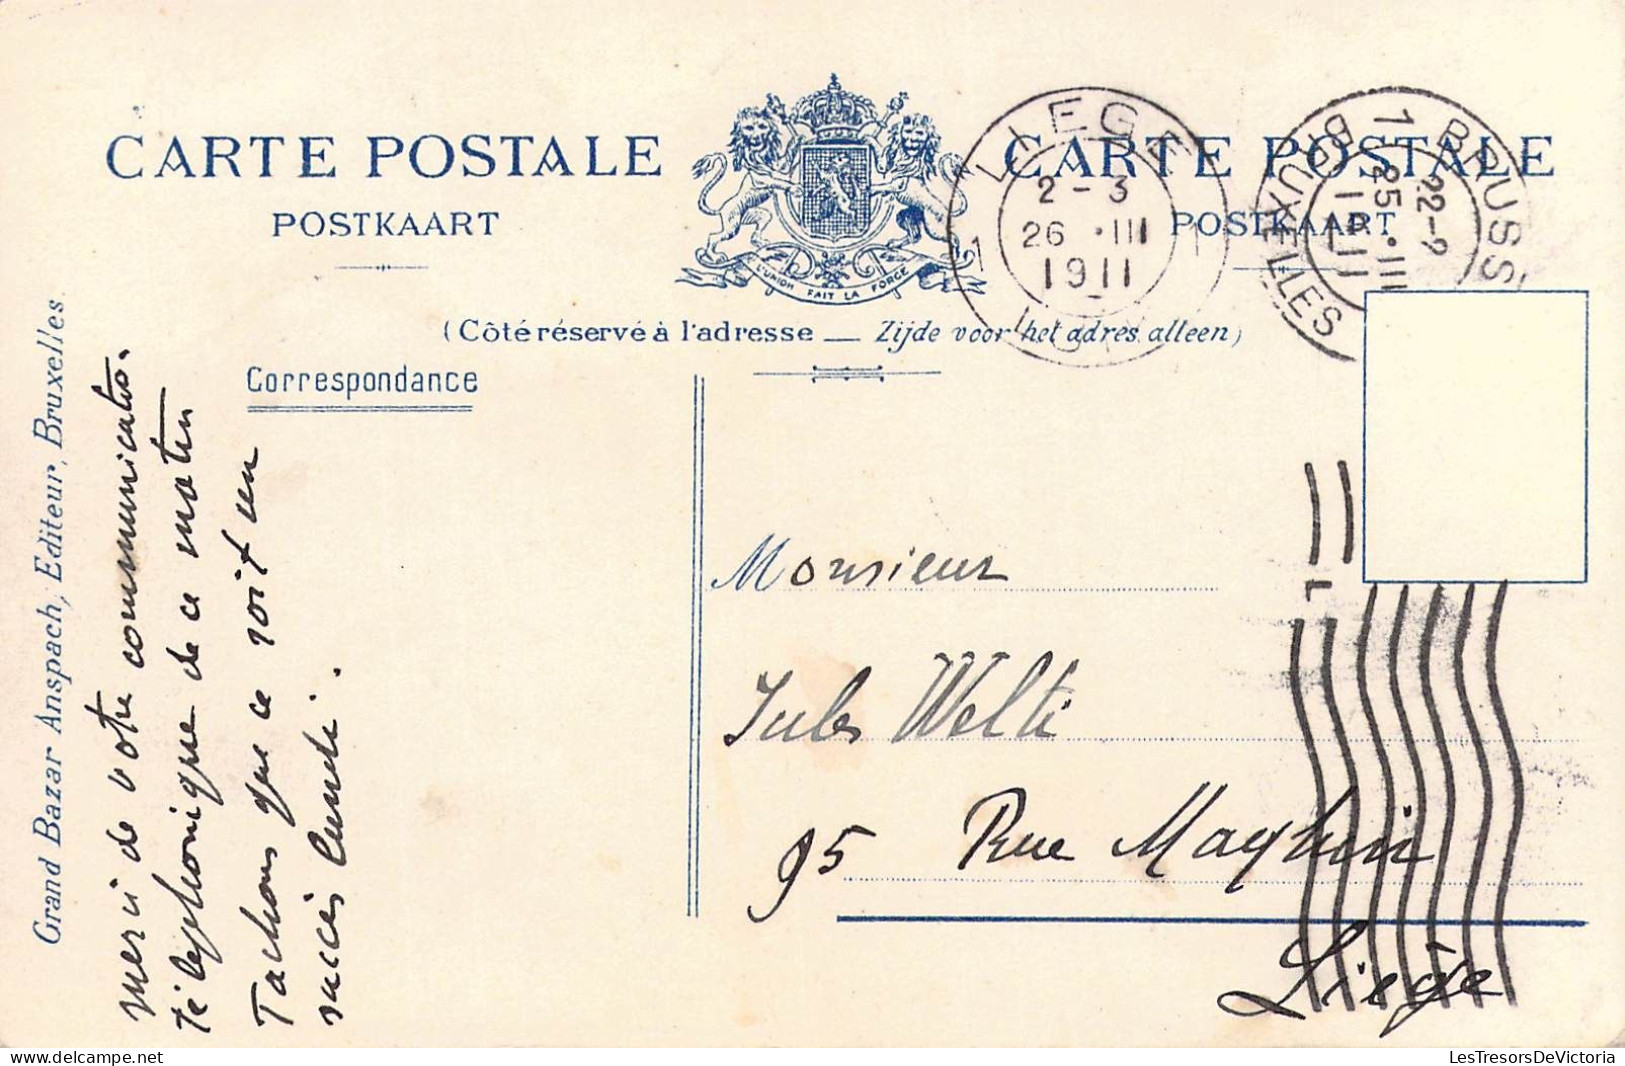 CARTE POSTALE
POSTKAART
CARTE POSTALE
POSTKAART
L'UNION FAIT LA FORCE
LIEGE
1 1
2 - 3
26 • III
1911
1 BRUSSEL
BRUXELLES
22-2
25 • III
1911
(Côté réservé à l'adresse — Zijde voor het adres alleen)
Correspondance
Grand Bazar Anspach, Editeur, Bruxelles
merci de votre communicatio.
téléphonique de ce matin
Tachons que ce soit un
succès lundi.
Monsieur
Jules Welti
95 Rue Maghin
Liège
LesTresorsDeVictoria